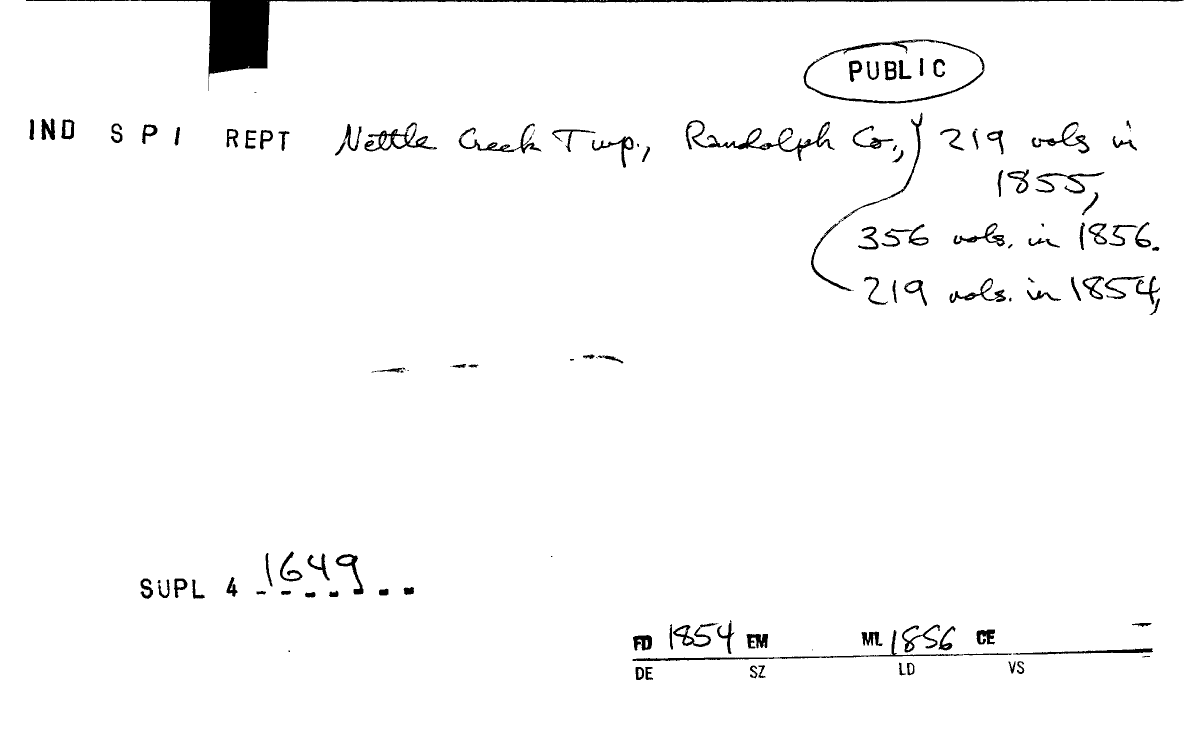 PUBLIC
IND S P I REPT Nettle Creek Twp., Randolph Co., 219 vols in
1855,
356 vols. in 1856.
219 vols. in 1854,
SUPL 4 1649
FD 1854 EM ML 1856 CE
DE SZ LD VS